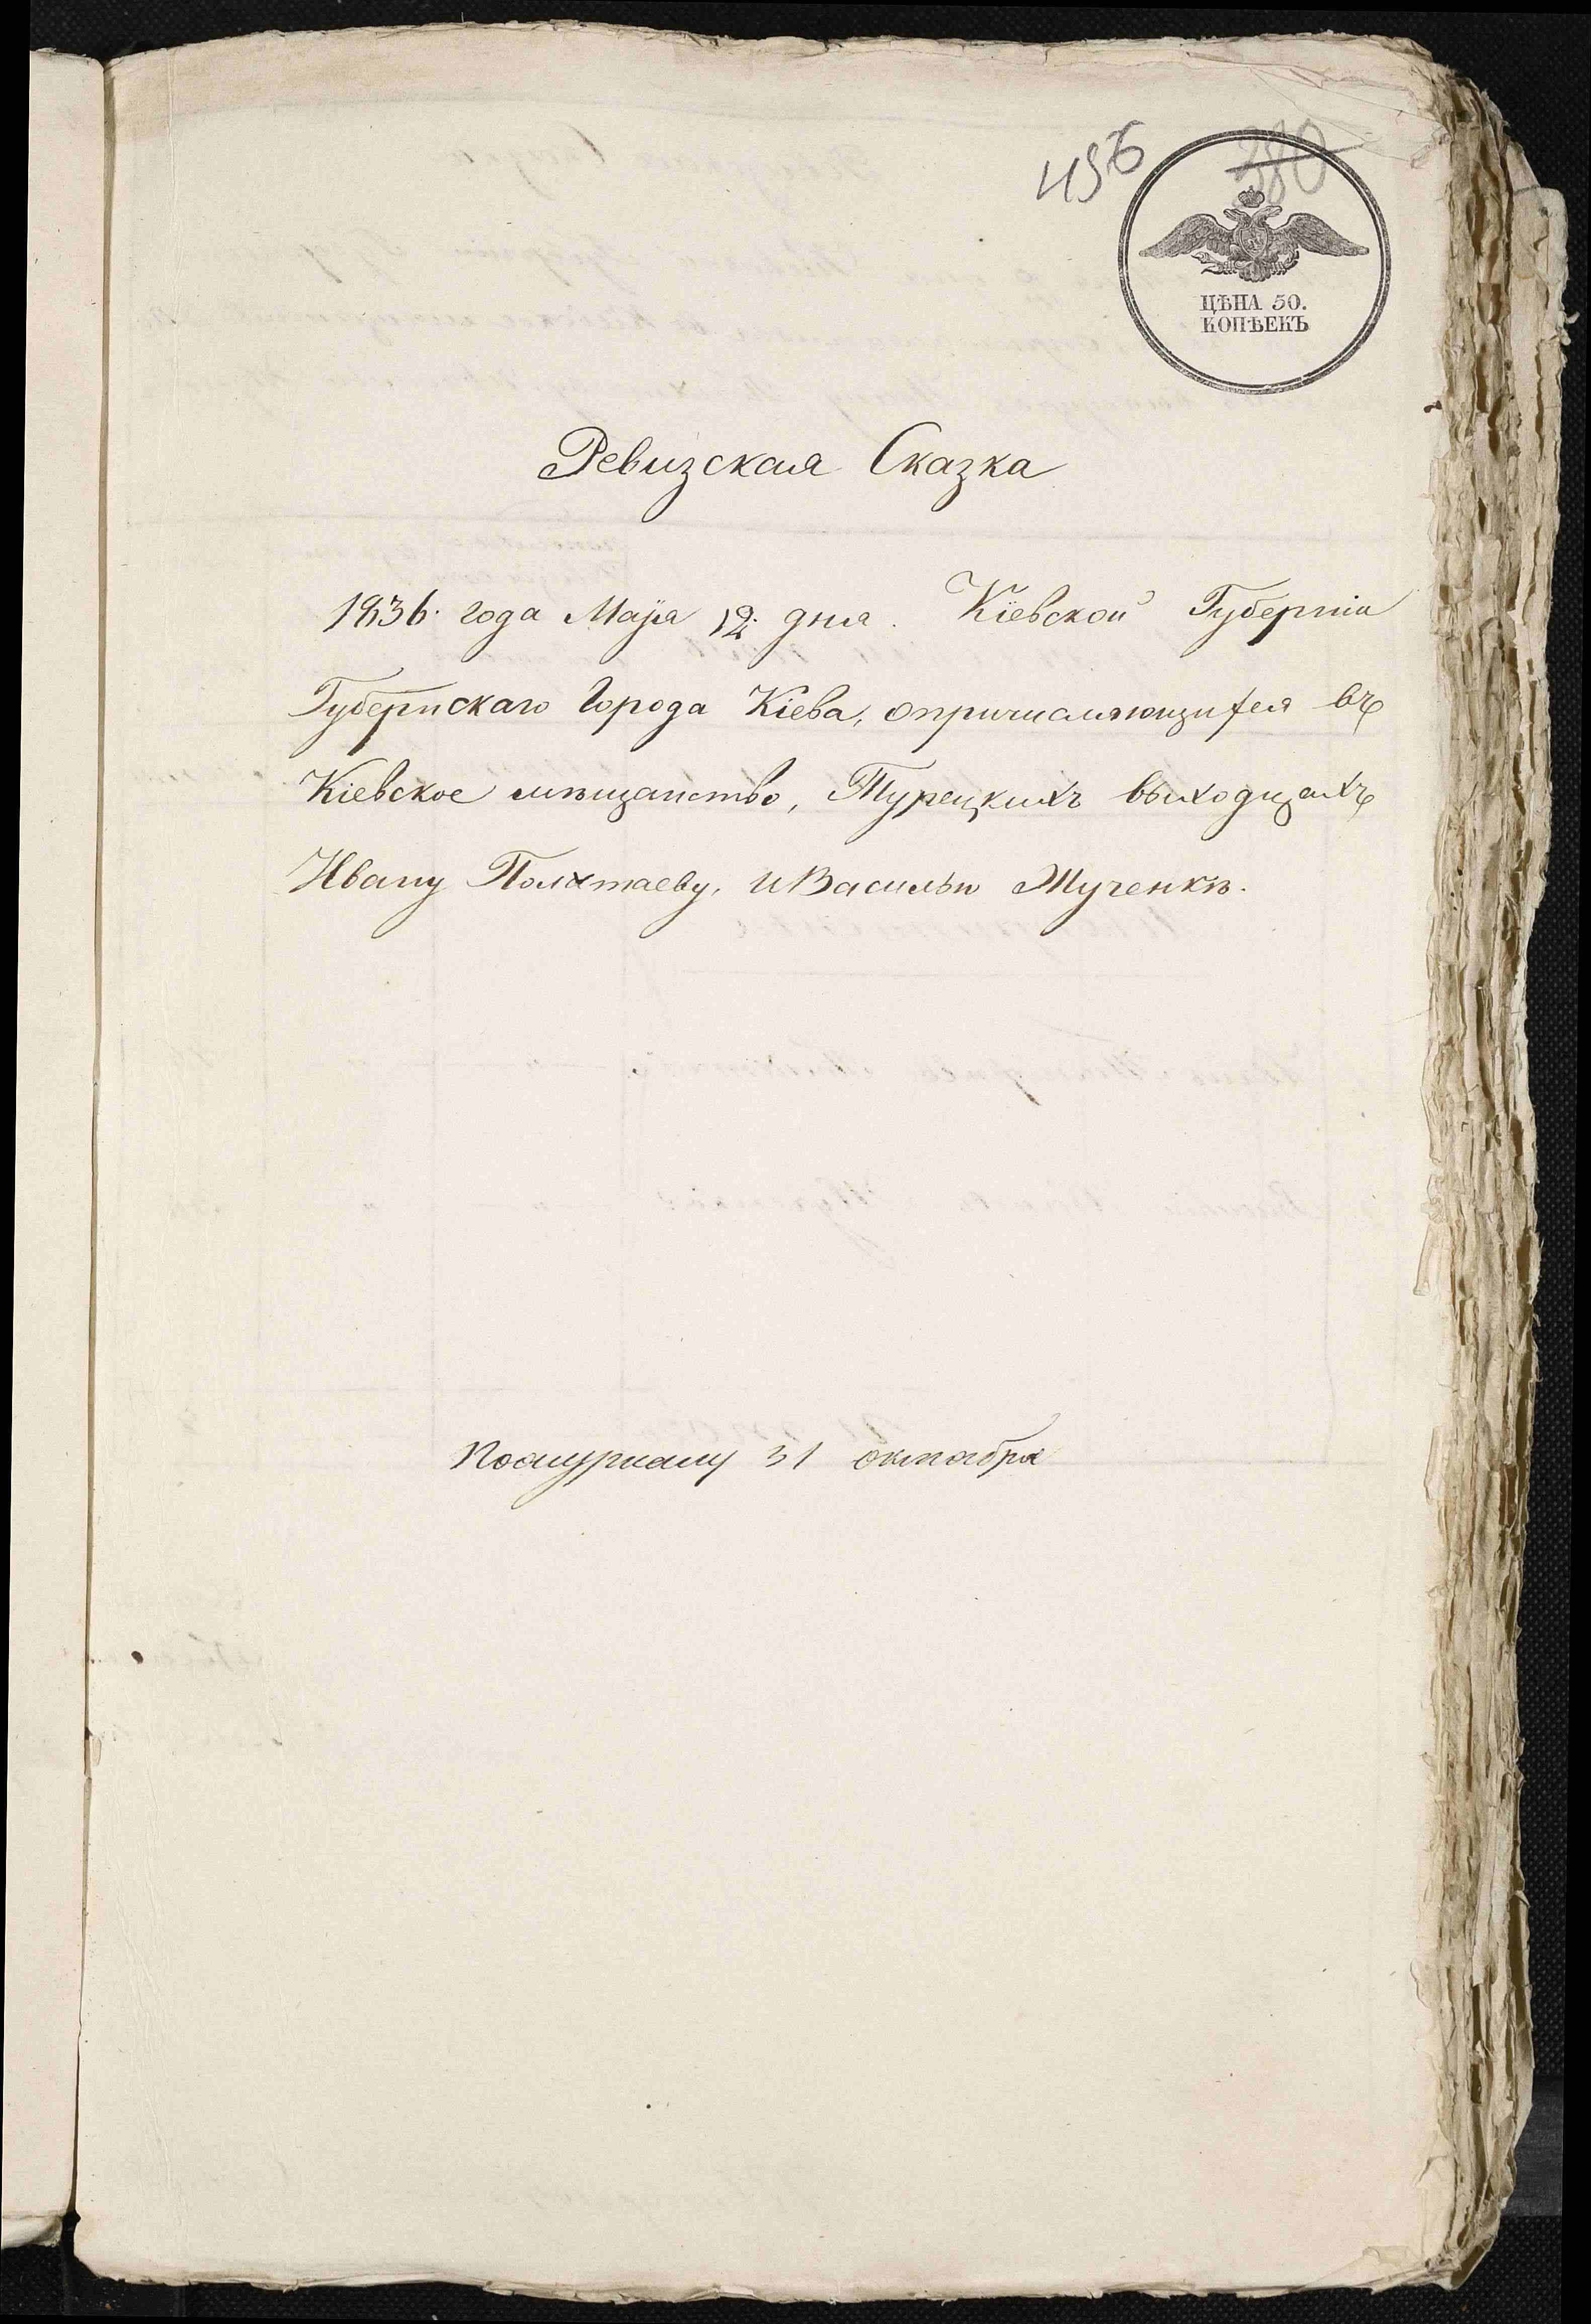 456 380
ЦѢНА 50.
КОПѢЕКЪ
Ревизская Сказка
1836. года Маїя 12. дня. Кіевской Губерніи
Губернскаго Города Кіева, опричисляющихся въ
Кіевское мѣщанство, Турецкихъ выходцахъ
Ивану Полатаеву, и Василью Тученкѣ.
Пожурналу 31 октября